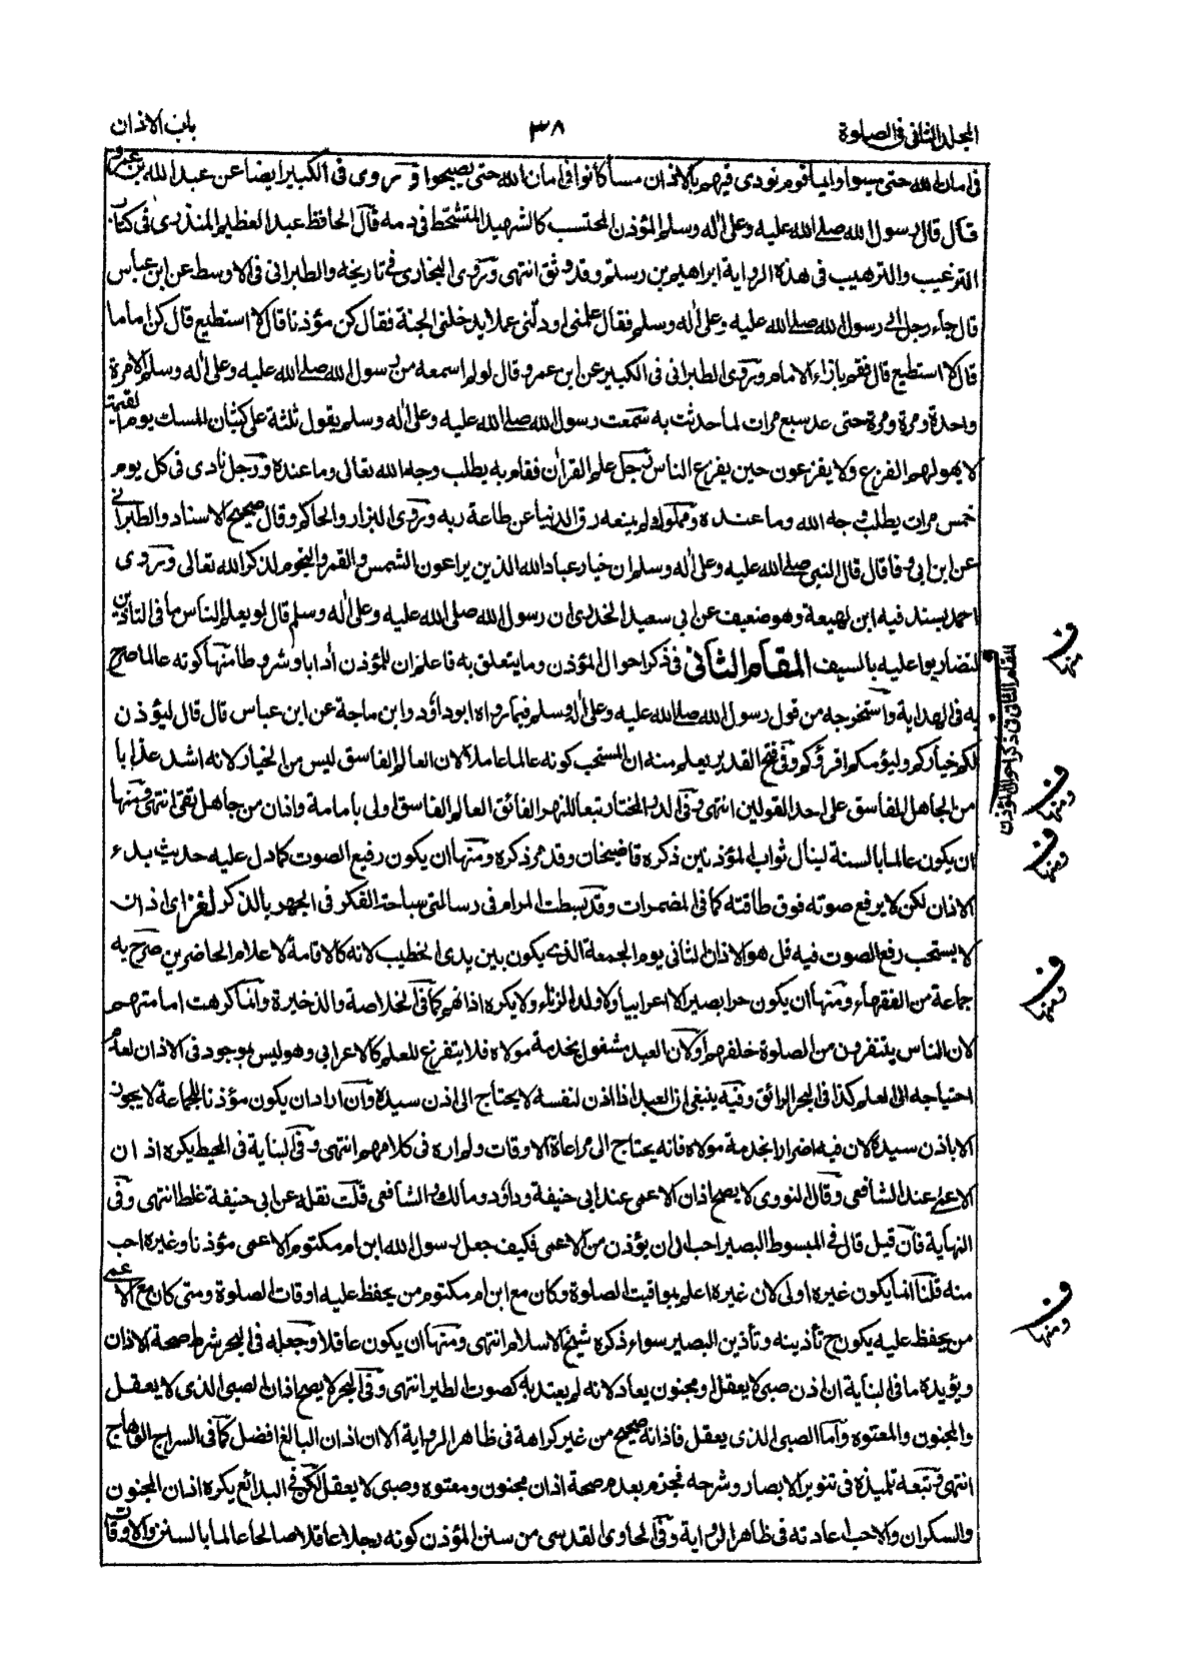 المجلد الثانی فی الصلوة
٣٨
باب الاذان
فی امان الله حتی یمسوا وایما قوم نودی فیهم بالاذان مساء کانوا فی امان الله حتی یصبحوا وروی فی الکبیر ایضا عن عبد الله بن عمرو
قال قال رسول الله صلے الله علیه وعلی اٰله وسلم المؤذن المحتسب کالشهید المتشحط فی دمه قال الحافظ عبد العظیم المنذری فی کتاب
الترغیب والترهیب فی هذه الروایة ابراهیم بن رستم وقد وثق انتهی وروی البخاری فی تاریخه والطبرانی فی الاوسط عن ابن عباس
قال جاء رجل الی رسول الله صلے الله علیه وعلی اٰله وسلم فقال علمنی او دلّنی علی عمل یدخلنی الجنة فقال کن مؤذنا قال لا استطیع قال کن اماما
قال لا استطیع قال فقم بازاء الامام وروی الطبرانی فی الکبیر عن ابن عمر وقال لو لم اسمعه من رسول الله صلے الله علیه وعلی اٰله وسلم الا مرة
واحدة ومرة ومرة حتی عد سبع مرات لما حدثت به سمعت رسول الله صلے الله علیه وعلی اٰله وسلم یقول ثلثة علی کثبان المسک یوم القیمة
لا یهولهم الفزع ولا یفزعون حین یفزع الناس رجل علم القراٰن فقام به یطلب وجه الله تعالی وما عنده ورجل نادی فی کل یوم
خمس مرات یطلب وجه الله وما عنده ومملوک لم یمنعه رق الدنیا عن طاعة ربه وروی البزار والحاکم وقال صحیح الاسناد والطبرانی
عن ابن ابی اوفی قال قال النبی صلے الله علیه وعلی اٰله وسلم ان خیار عباد الله الذین یراعون الشمس والقمر والنجوم لذکر الله تعالی وروی
احمد بسند فیه ابن لهیعة وهو ضعیف عن ابی سعید الخدری ان رسول الله صلی الله علیه وعلی اٰله وسلم قال لو یعلم الناس ما فی التاذین
لتضاربوا علیه بالسیف المقام الثانی فی ذکر احوال المؤذن وما یتعلق به فاعلم ان للمؤذن اٰدابا وشروطا منها کونه عالما صرح
به فی الهدایة واستخرجه من قول رسول الله صلے الله علیه وعلی اٰله وسلم فیما رواه ابو داؤد وابن ماجة عن ابن عباس قال قال لیؤذن
لکم خیارکم ولیؤمکم اقرؤکم وفی فتح القدیر یعلم منه ان المستحب کونه عالما عاملا لان العالم الفاسق لیس من الخیار لانه اشد عذابا
من الجاهل الفاسق علی احد القولین انتهی وفی الدر المختار تبعا للنهر الفائق العالم الفاسق اولی بامامة واذان من جاهل تقی انتهی ومنها
ان یکون عالما بالسنة لینال ثواب المؤذنین ذکره قاضیخان وقد مر ذکره ومنها ان یکون رفیع الصوت کما دل علیه حدیث بدء
الاذان لکن لا یرفع صوته فوق طاقته کما فی المضمرات وقد بسطت المرام فی رسالتی سباحة الفکر فی الجهر بالذکر لغز ای اذان
لا یستحب رفع الصوت فیه قل هو الاذان الثانی یوم الجمعة الذی یکون بین یدی الخطیب لانه کالاقامة لاعلام الحاضرین صرح به
جماعة من الفقهاء ومنها ان یکون حرا بصیرا لا اعرابیا ولا ولد الزناء ولا یکره اذانهم کما فی الخلاصة والذخیرة وانما کرهت امامتهم
لان الناس یتنفرون من الصلوة خلفهم اولان العبد مشغول بخدمة مولاه فلا یتفرغ للعلم کالاعرابی وهو لیس بموجود فی الاذان لعدم
احتیاجه الی العلم کذا فی البحر الرائق وفیه ینبغی ان العبد اذا اذن لنفسه لا یحتاج الی اذن سیده وان اراد ان یکون مؤذنا للجماعة لا یجوز
الا باذن سیده لان فیه اضرارا بخدمة مولاه فانه یحتاج الی مراعاة الاوقات ولم اره فی کلامهم انتهی وفی البنایة فی المحیط یکره اذان
الاعمی عند الشافعی وقال النووی لا یصح اذان الاعمی عند ابی حنیفة وداؤد ومالک والشافعی قلت نقله عن ابی حنیفة غلط انتهی وفی
النهایة فان قیل قال فی المبسوط البصیر احب الی ان یؤذن من الاعمی فکیف جعل رسول الله ابن ام مکتوم الاعمی مؤذنا وغیره احب
منه قلنا انما یکون غیره اولی لان غیره اعلم بمواقیت الصلوة وکان مع ابن ام مکتوم من یحفظ علیه اوقات الصلوة ومتی کان مع الاعمی
من یحفظ علیه یکون ح تأذینه وتأذین البصیر سواء ذکره شیخ الاسلام انتهی ومنها ان یکون عاقلا وجعله فی البحر شرط صحة الاذان
ویؤیده ما فی البنایة ان اذن صبی لا یعقل او مجنون یعاد لانه لم یعتد به کصوت الطیر انتهی وفی البحر لا یصح اذان الصبی الذی لا یعقل
والمجنون والمعتوه واما الصبی الذی یعقل فاذانه صحیح من غیر کراهة فی ظاهر الروایة الا ان اذان البالغ افضل کما فی السراج الوهاج
انتهی وتبعه تلمیذه فی تنویر الابصار وشرحه فجزم بعدم صحة اذان مجنون ومعتوه وصبی لا یعقل لکن فی البدائع یکره اذان المجنون
والسکران والاحب اعادته فی ظاهر الروایة وفی الحاوی القدسی من سنن المؤذن کونه رجلا عاقلا صالحا عالما بالسنن والاوقات
المقام الثانی فی ذکر احوال المؤذن
ف منها
ف ومنها
ف ومنها
ف ومنها
ف ومنها